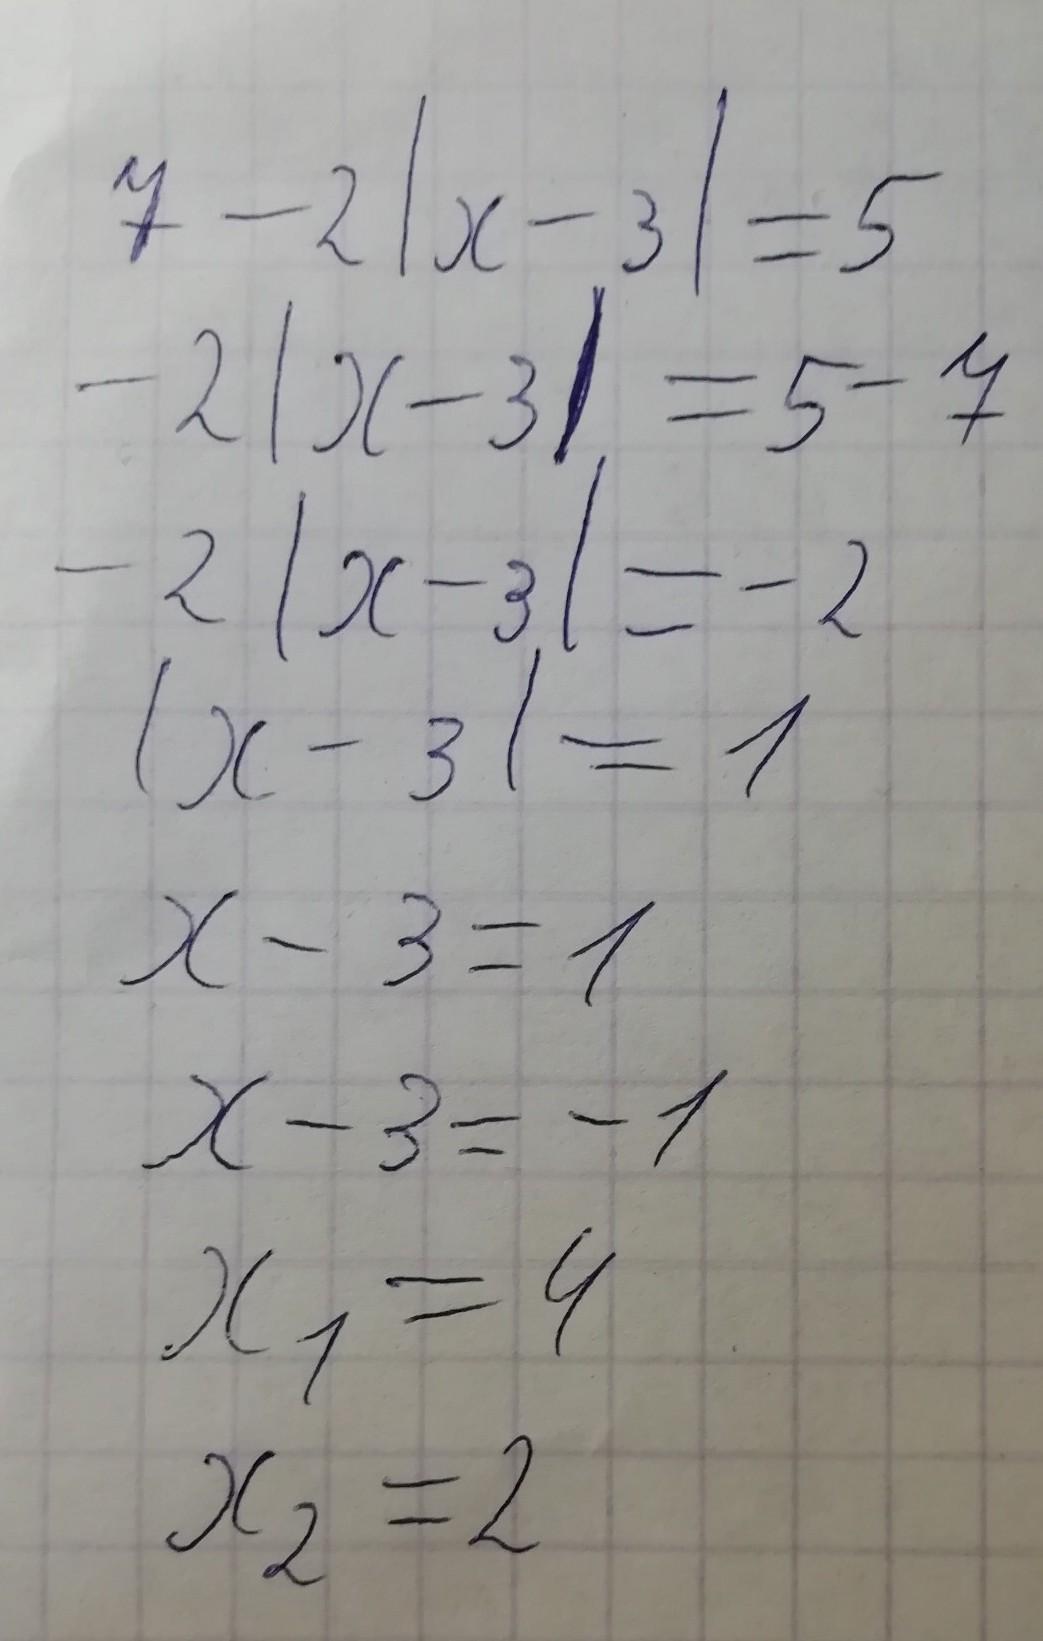 7 - 2|x - 3| = 5
- 2|x - 3| = 5 - 7
- 2|x - 3| = - 2
|x - 3| = 1
x - 3 = 1
x - 3 = - 1
x₁ = 4
x₂ = 2